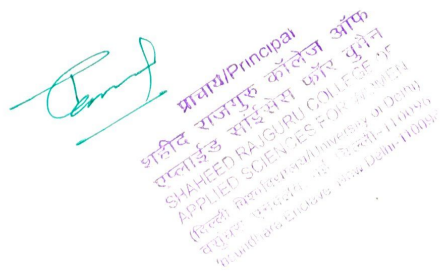 प्राचार्य/Principal
शहीद राजगुरु कॉलेज ऑफ
एप्लाईड साईंसेस फॉर वुमैन
SHAHEED RAJGURU COLLEGE OF
APPLIED SCIENCES FOR WOMEN
(दिल्ली विश्वविद्यालय/University of Delhi)
वसुन्धरा एन्क्लेव, नई दिल्ली-110096
Vasundhara Enclave, New Delhi-110096